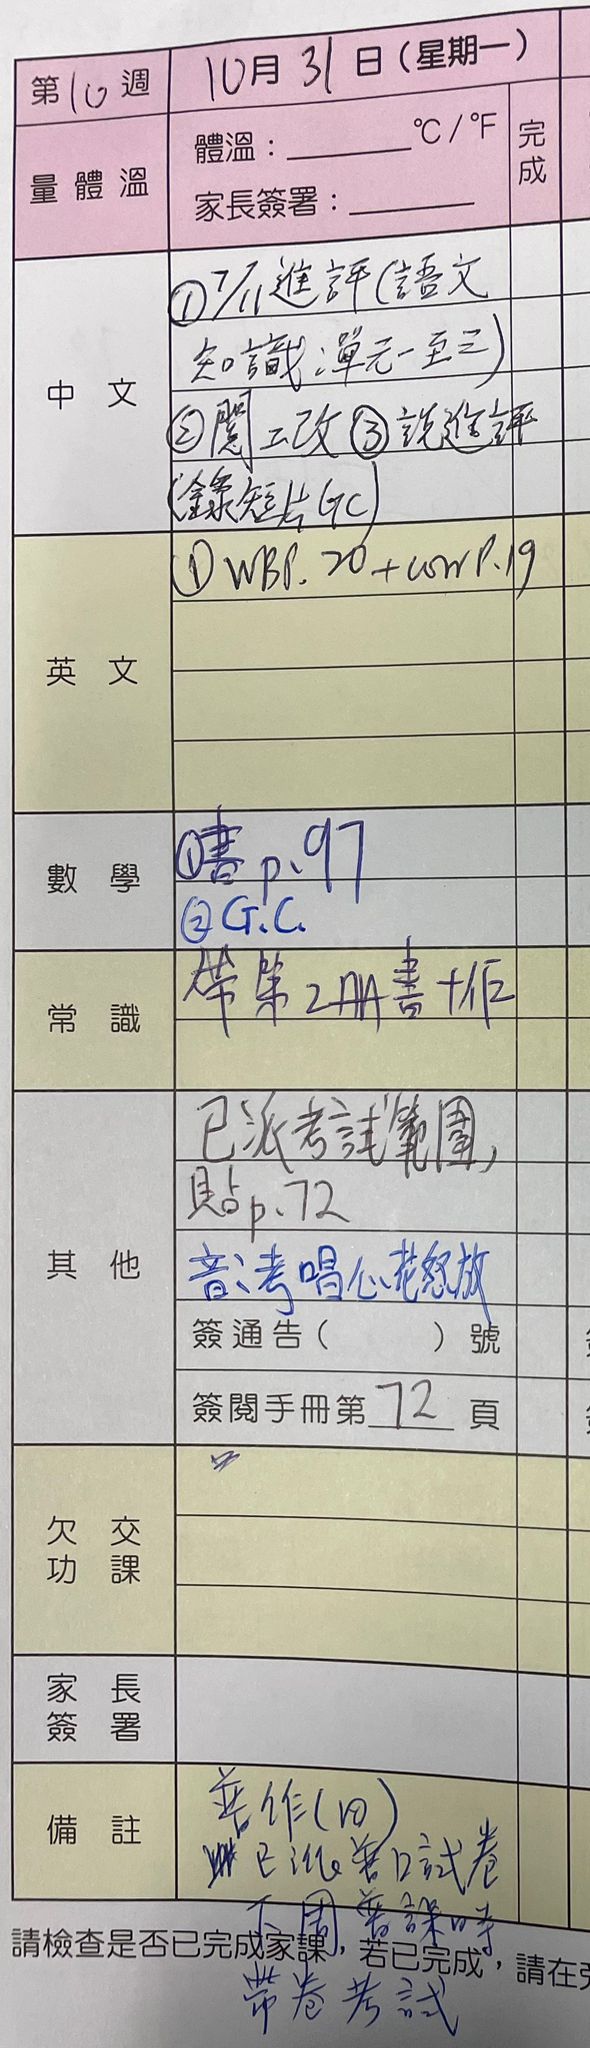 第10週 10月31日(星期一)
量體溫
體溫：______°C/°F
家長簽署：______
完成
中文
①7/11進評(語文
知識:單元一至三)
②閱工改 ③說進評
(錄短片GC)
英文
① WBP.20+corr P.19
數學
①書p.97
②G.C.
常識
帶第2冊書+作
其他
已派考試範圍,
貼p.72
音:考唱心花怒放
簽通告(        )號
簽閱手冊第 72 頁
欠交
功課
家長
簽署
備註
普作(日)
已派普口試卷
下周普課時
請檢查是否已完成家課，若已完成，請在旁
帶卷考試